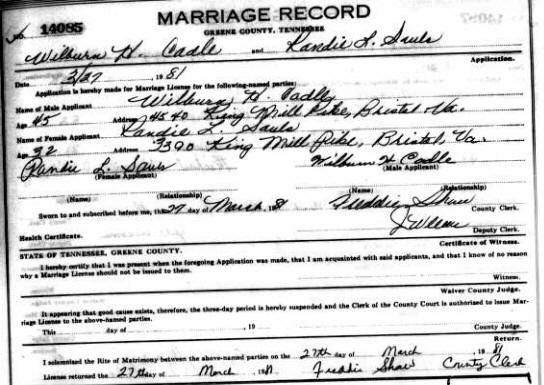 No. 14085
MARRIAGE RECORD
GREENE COUNTY, TENNESSEE
Wilburn H. Cadle and Randie L. Sauls
Application.
Date 3/27, 1981
Application is hereby made for Marriage License for the following-named parties:
Name of Male Applicant Wilburn H. Cadle
Age 45 Address 4540 King Mill Pike, Bristol, Va.
Name of Female Applicant Randie L. Sauls
Age 32 3390 King Mill Pike, Bristol, Va.
Randie L. Sauls Wilburn H Cadle
(Female Applicant) (Male Applicant)
(Name) (Relationship) (Name) (Relationship)
Sworn to and subscribed before me, this 27 day of March, 1981 Freddie Shaw County Clerk.
Deputy Clerk.
Health Certificate.
Certificate of Witness.
STATE OF TENNESSEE, GREENE COUNTY.
I hereby certify that I was present when the foregoing Application was made, that I am acquainted with said applicants, and that I know of no reason
why a Marriage License should not be issued to them.
Witness.
Waiver County Judge.
It appearing that good cause exists, therefore, the three-day period is hereby suspended and the Clerk of the County Court is authorized to issue Mar-
riage License to the above-named parties.
This day of , 19 County Judge.
Return.
I solemnized the Rite of Matrimony between the above-named parties on the 27th day of March, 1981
License returned the 27th day of March, 1981. Freddie Shaw County Clerk